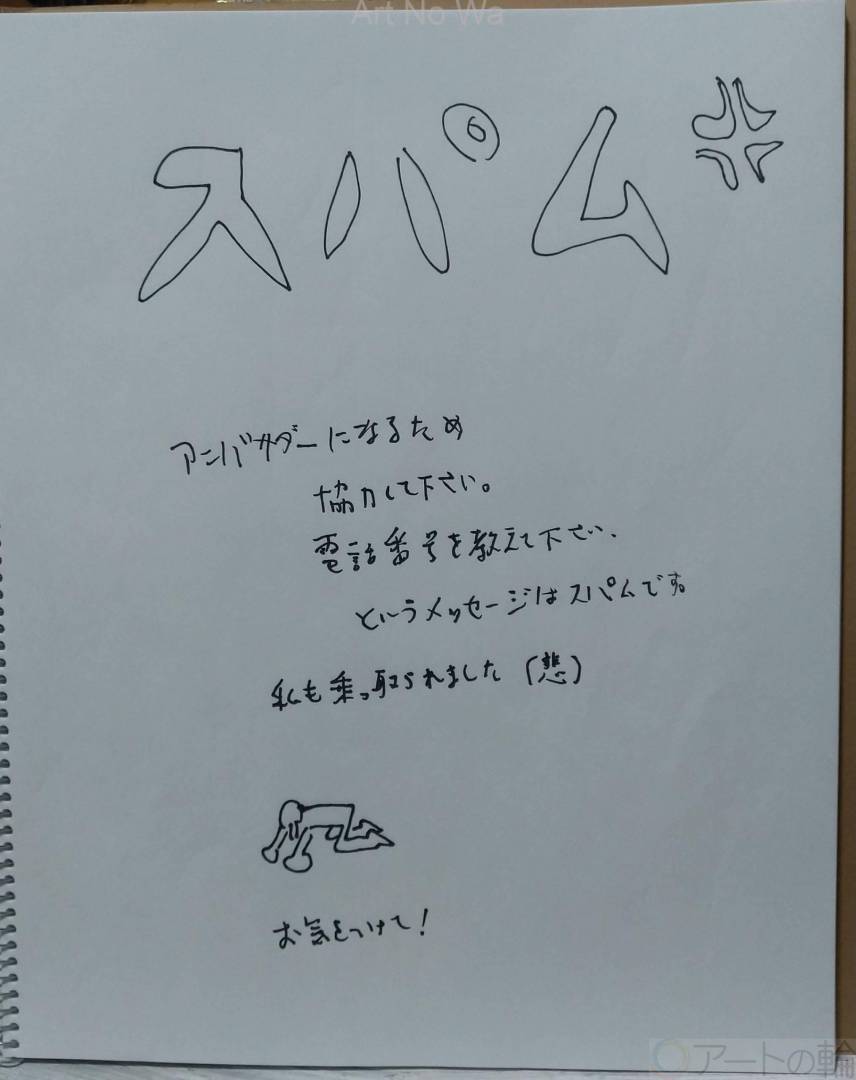 Art No Wa
スパム
アンバサダーになるため
協力して下さい。
電話番号を教えて下さい、
というメッセージはスパムです。
私も乗っ取られました(悲)
お気をつけて!
アートの輪